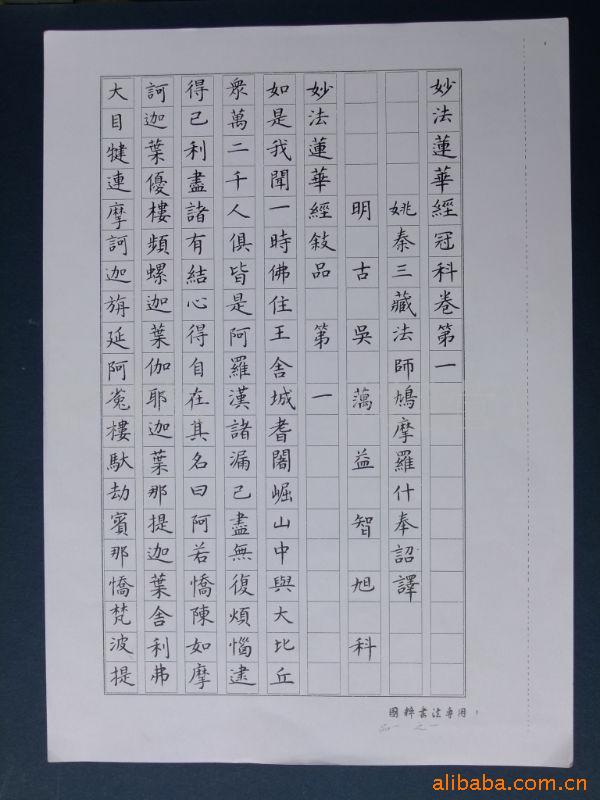 妙法蓮華經冠科卷第一
姚秦三藏法師鳩摩羅什奉詔譯
明古吳蕅益智旭科
妙法蓮華經敍品第一
如是我聞一時佛住王舍城耆闍崛山中與大比丘
衆萬二千人俱皆是阿羅漢諸漏已盡無復煩惱逮
得已利盡諸有結心得自在其名曰阿若憍陳如摩
訶迦葉優樓頻螺迦葉伽耶迦葉那提迦葉舍利弗
大目犍連摩訶迦旃延阿㝹樓馱劫賓那憍梵波提
國粹書法專用
品一之一
alibaba.com.cn